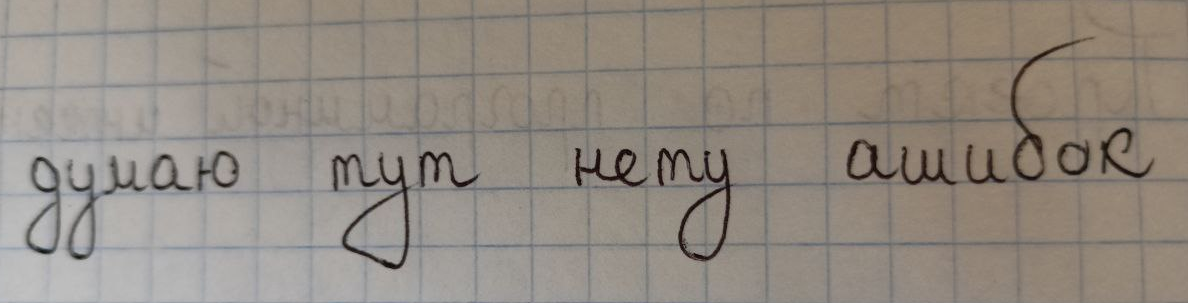 думаю тут нету ашибок